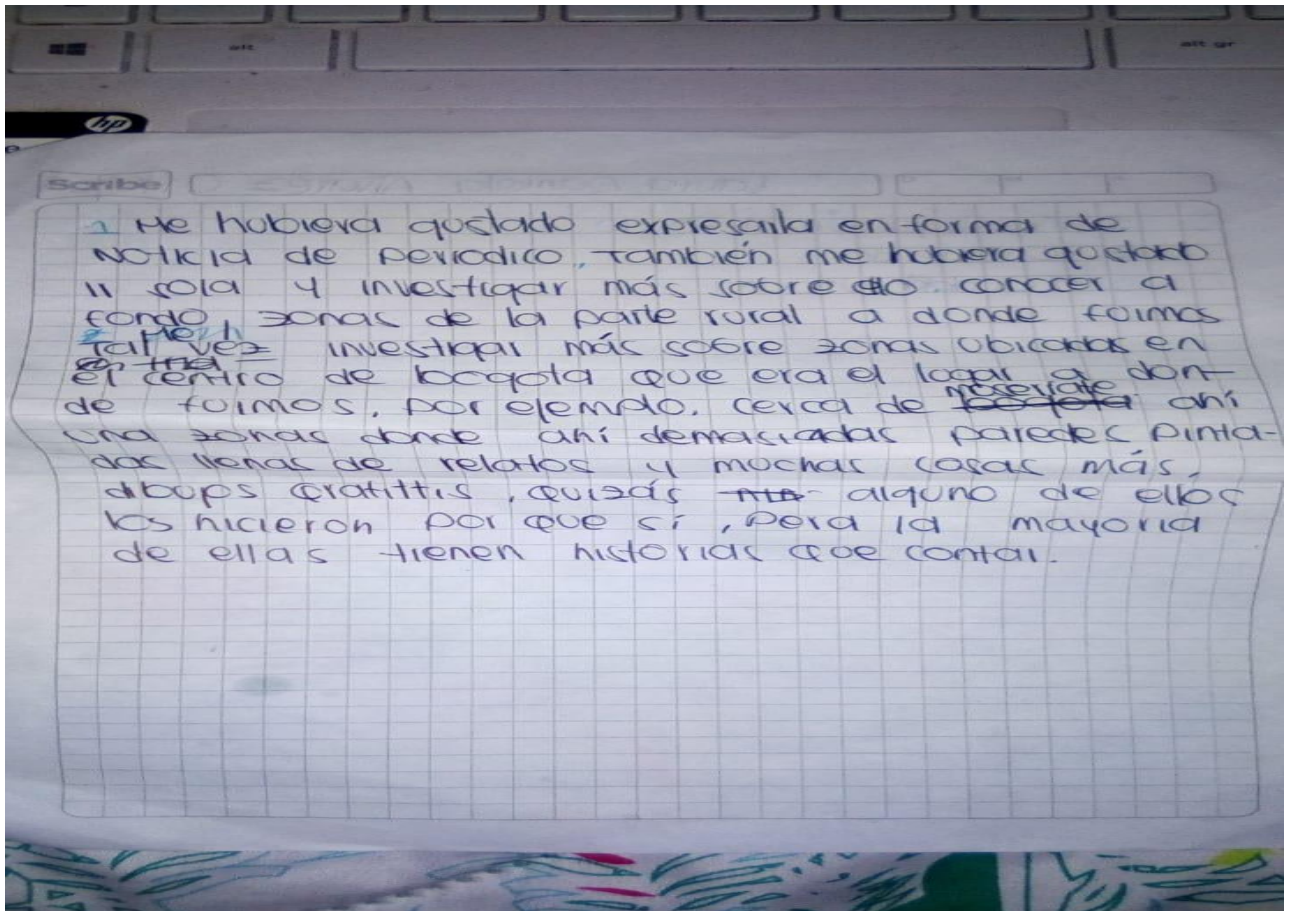 alt
alt gr
hp
Scribe
1 Me hubiera gustado expresarla en forma de
Noticia de periodico, También me hubiera gustado
ir sola y investigar más sobre conocer a
fondo zonas de la parte rural a donde fuimos
2 Me h
Tal vez investigar más sobre zonas ubicadas en
el centro de bogota que era el lugar a don-
de fuimos. por ejemplo. cerca de monserrate ahí
una zonas donde ahí demasiadas paredes pinta-
das llenas de relatos y muchas cosas más.
dibujos grafittis, quizás alguno de ellos
los hicieron por que si, pera la mayoria
de ellas tienen historias que contar.